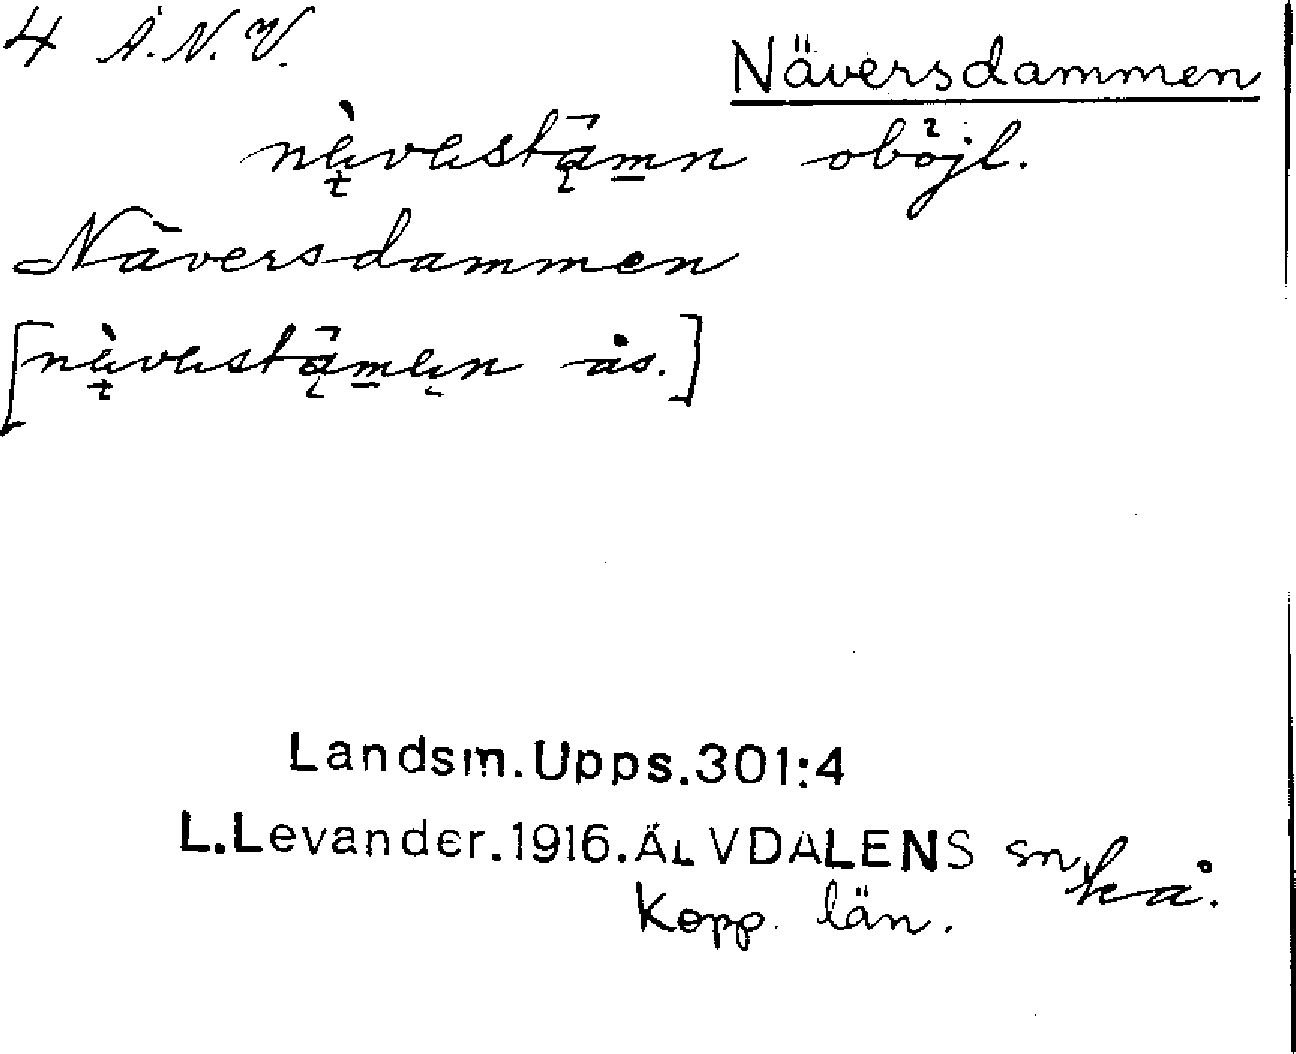 4 Å.N.V.
Näversdammen
nävästämn oböjl.
Näversdammen
[nävästämen ås.]
Landsm.Upps.301:4
L.Levander.1916.ÄLVDALENS sn, kå.
Kopp. län.